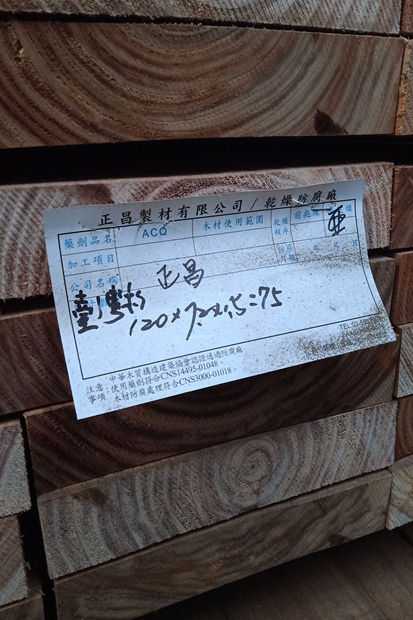 正昌製材有限公司 / 乾燥防腐廠
藥劑品名 ACQ 木材使用範圍
加工項目
公司名稱 正昌
120×7.2×1.5=75
TEL:02-
注意事項:
中華木質構造建築協會認證通過防腐廠
使用藥劑符合CNS14495-01048。
木材防腐處理符合CNS3000-01018。